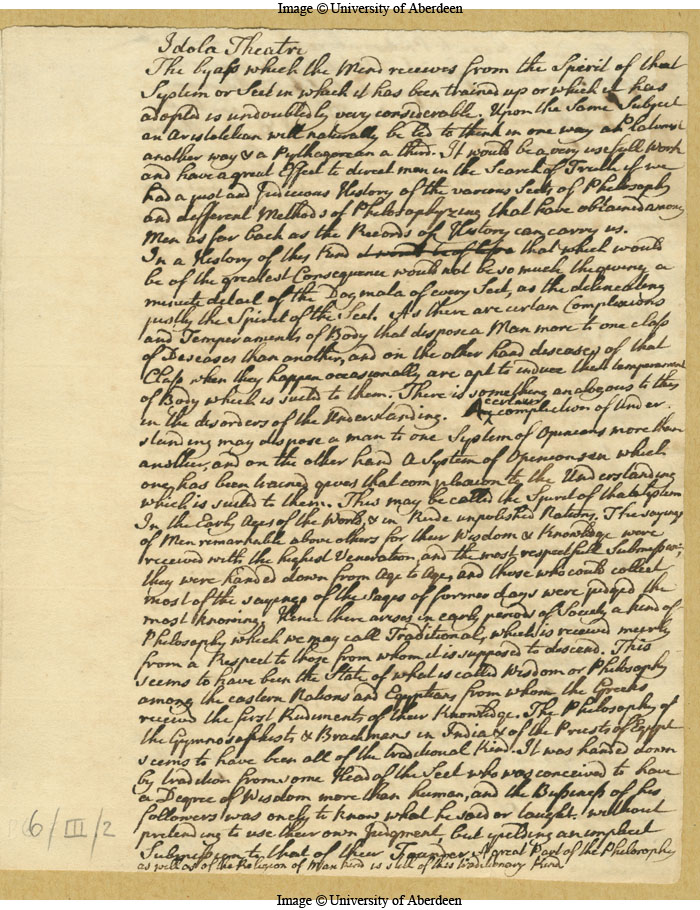 Image © University of Aberdeen
Idola Theatri
The byass which the Mind receives from the Spirit of that
System or Sect in which it has been trained up or which it has
adopted is undoubtedly very considerable. Upon the Same Subject
an Aristotelian will naturally be led to think in one way a Platonist
another way & a Pythagorean a third. It would be a very usefull Work
and have a great Effect to direct men in the Search of Truth if we
had a just and Judicious History of the various Sects of Philosophy
and different Methods of Philosophyzing that have obtained among
Men as far back as the Records of History can carry us.
In a History of this kind it would be of use that which would
be of the greatest Consequence would not be so much the giving a
minute detail of the Dogmata of every Sect, as the delineating
justly the Spirit of the Sect. As there are certain Complexions
and Temperaments of Body that dispose a Man more to one class
of Deseases than another, and on the other hand deseases of that
Class when they happen occasionally are apt to induce that temperament
of Body which is suited to them. There is something analogous to this
in the disorders of the Understanding. A certain complection of Under
standing may dispose a man to one System of Opinions more than
another, and on the other hand A System of Opinions in which
one has been trained gives that complexion to the Understanding
which is suited to them. This may be called the Spirit of that System
In the Early Ages of the World, & in Rude unpolished Nations, The sayings
of Men remarkable above others for their Wisdom & Knowledge were
received with the highest Veneration, and the most respectfull Submission,
they were handed down from Age to Age, and those who could collect
most of the sayings of the Sages of former days were judged the
most knowing. Hence there arises in early periods of Society a kind of
Philosophy which we may call Traditional, which is received meerly
from a Respect to those from whom it is supposed to descend. This
seems to have been the State of what is called Wisdom or Philosophy
among the eastern Nations and Egyptians from whom the Greeks
received the first Rudiments of their Knowledge. The Philosophy of
the Gymnosophists & Brachmans in India & of the Priests of Egypt
seems to have been all of the traditional Kind. It was handed down
by tradition from some Head of the Sect who was conceived to have
a Degree of Wisdom more than human, and the Bussiness of his
followers was onely to know what he said or taught. without
pretending to use their own Judgment, but yielding an implicit
Submission to that of their Founder. A great Part of the Philosophy
as well as of the Religion of Man kind is still of this traditionary Kind
6/III/2
Image © University of Aberdeen